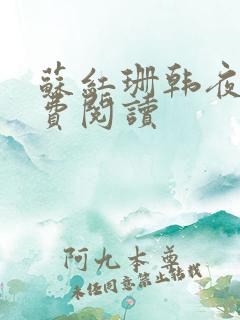 蘇紅珊韩夜
費閱讀
阿九本尊
未经同意禁止转载